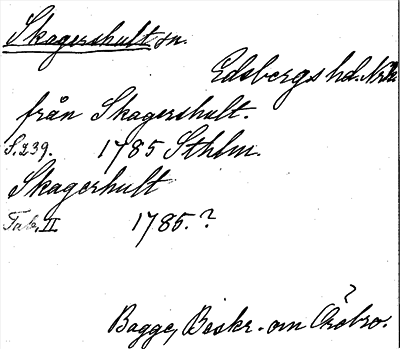 Skagershult sn.
Edsbergs hd. Nrke
från Skagershult.
S. 239. 1785 Sthlm.
Skagerhult
Tab. II 1785.?
Bagge, Beskr. om Örebro.